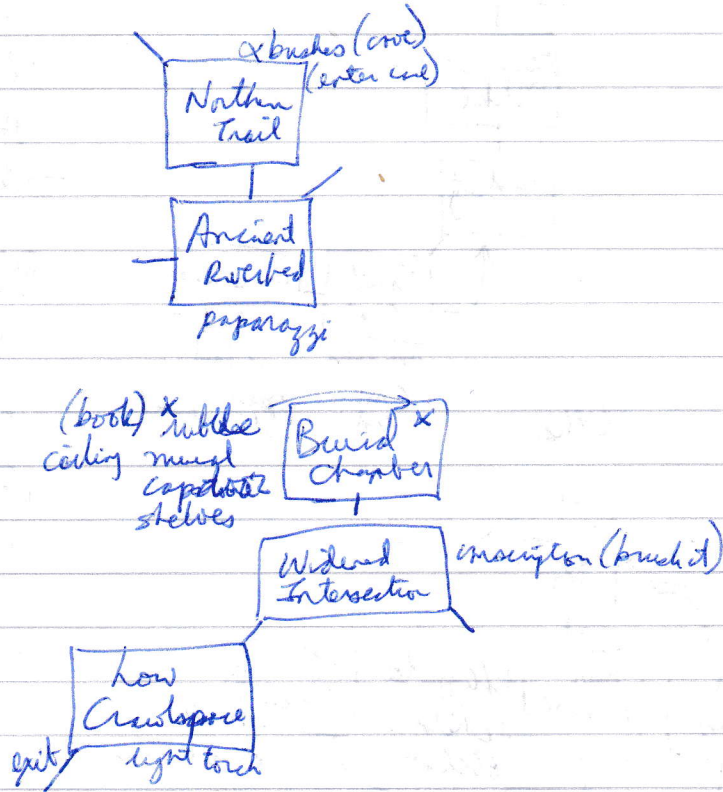 x bushes (cave)
(enter cave)
Northern
Trail
Ancient
Riverbed
paparazzi
(book) x rubble
ceiling mural
shelves
Burial x
Chamber
Widened
Intersection
inscription (brush it)
Low
Crawlspace
exit light torch